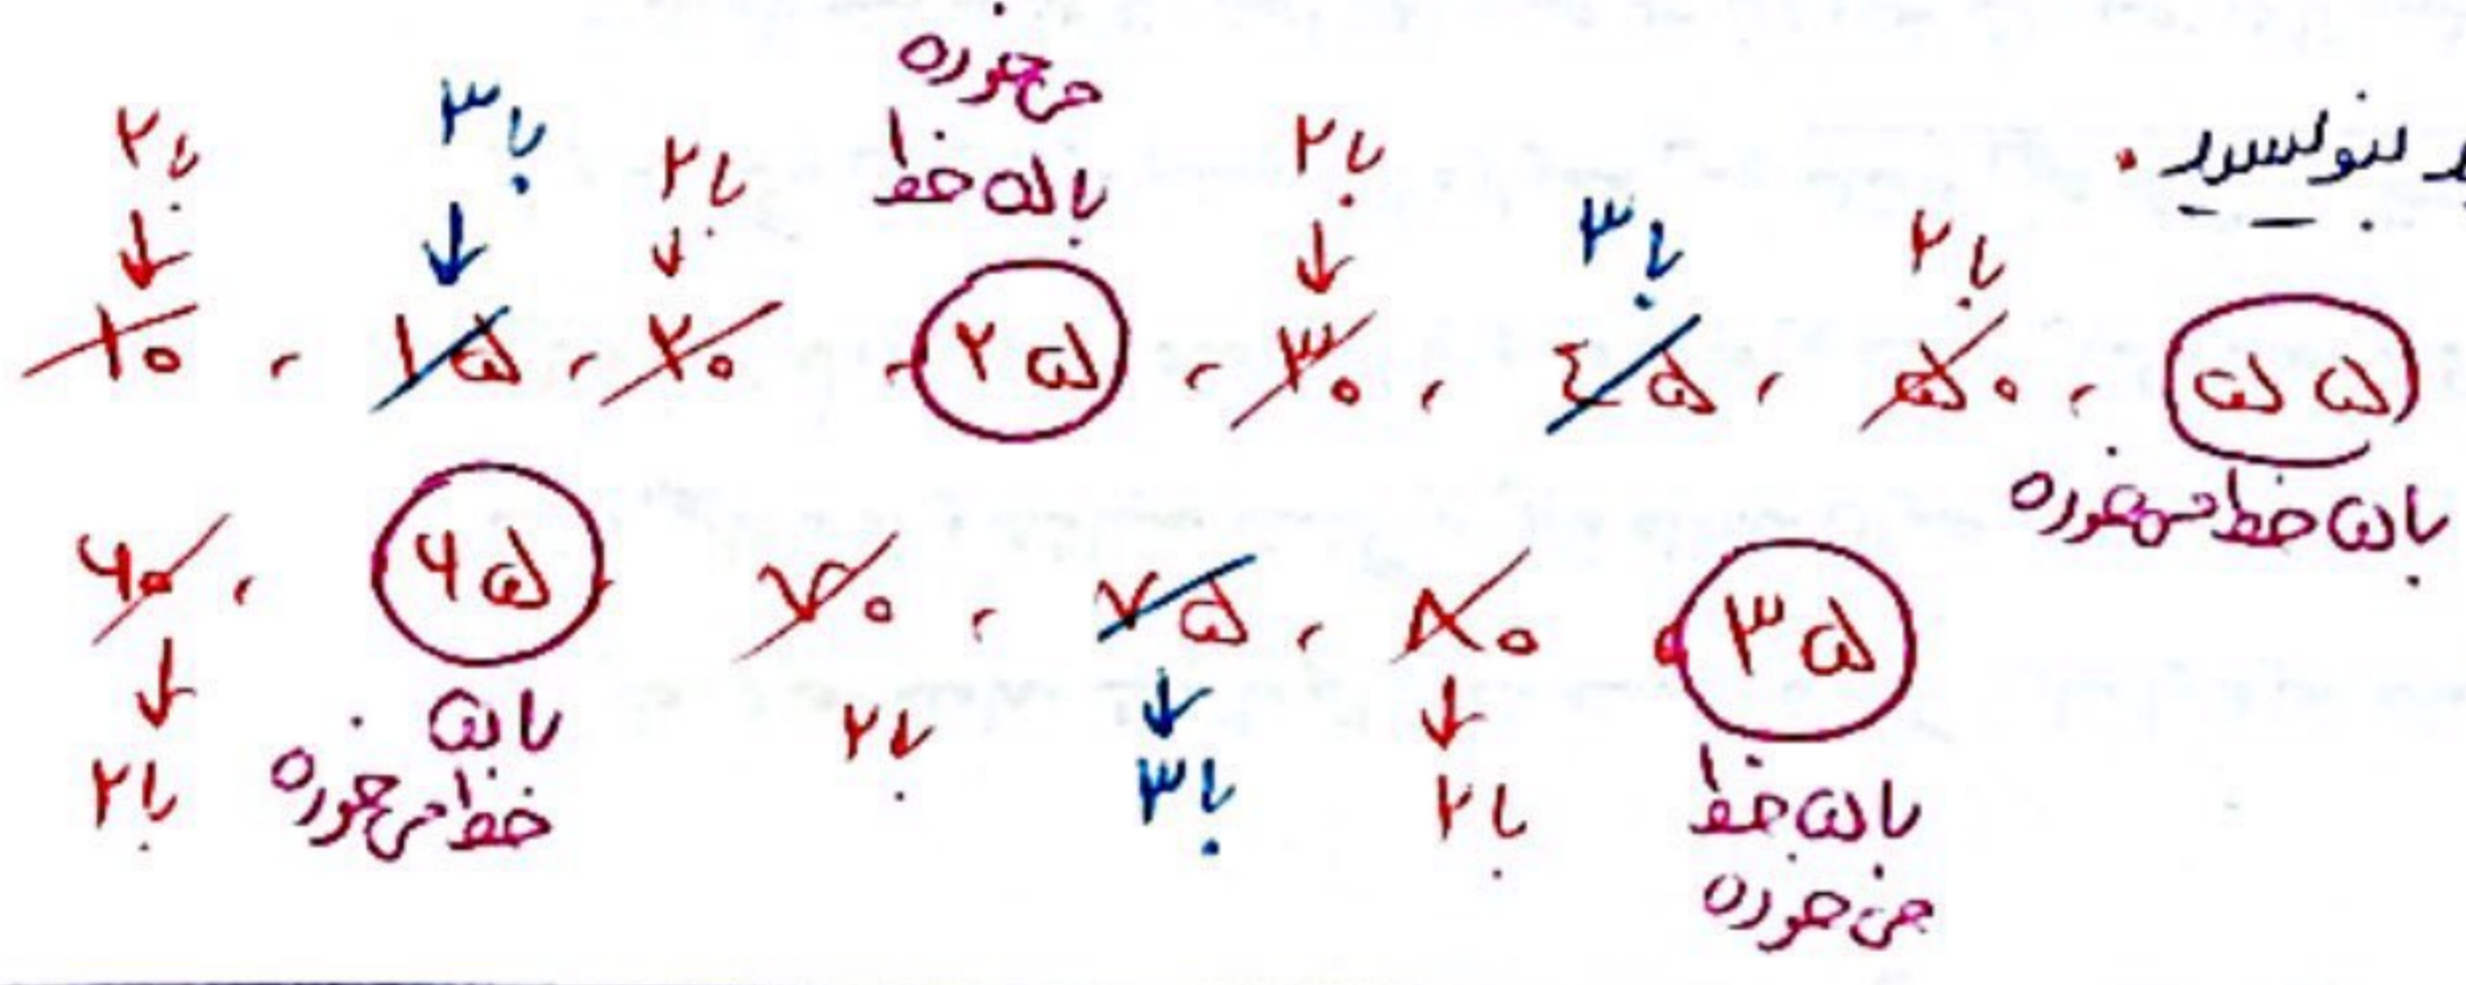 بنویسید .
با ۲ با ۳ با ۲ با ۵ خط می خوره با ۲ با ۳ با ۲
۱۰ ، ۱۵ ، ۲۰ ، ۲۵ ، ۳۰ ، ٤۵ ، ۵۰ ، ۵۵
با ۵ خط می خوره
۶۰ ، ۶۵ ، ۷۰ ، ۷۵ ، ۸۰ ، ۳۵
با ۲ با ۵ خط می خوره با ۲ با ۳ با ۲ با ۵ خط می خوره